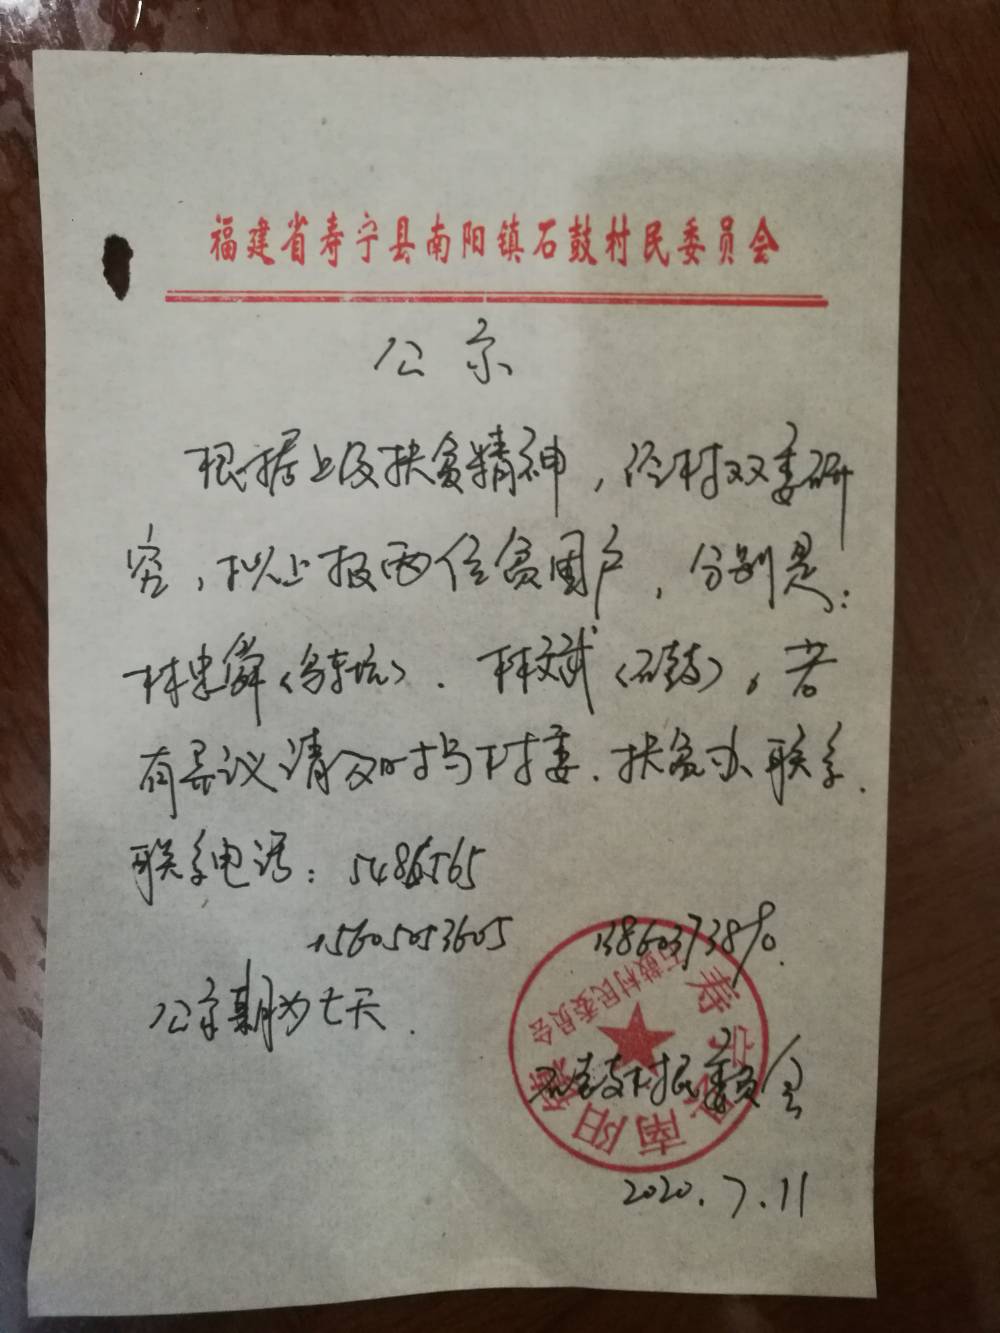 福建省寿宁县南阳镇石鼓村民委员会
公示
根据上级扶贫精神，经村双委研
究，拟上报两位贫困户，分别是：
林忠舜（乌东坑）．林文武（石鼓）。若
有异议请及时与村委．扶贫办联系．
联系电话：5486565
15605053605 13860373890
公示期为七天．
石鼓村民委员会
2020.7.11
寿宁县南阳镇
石鼓村民委员会